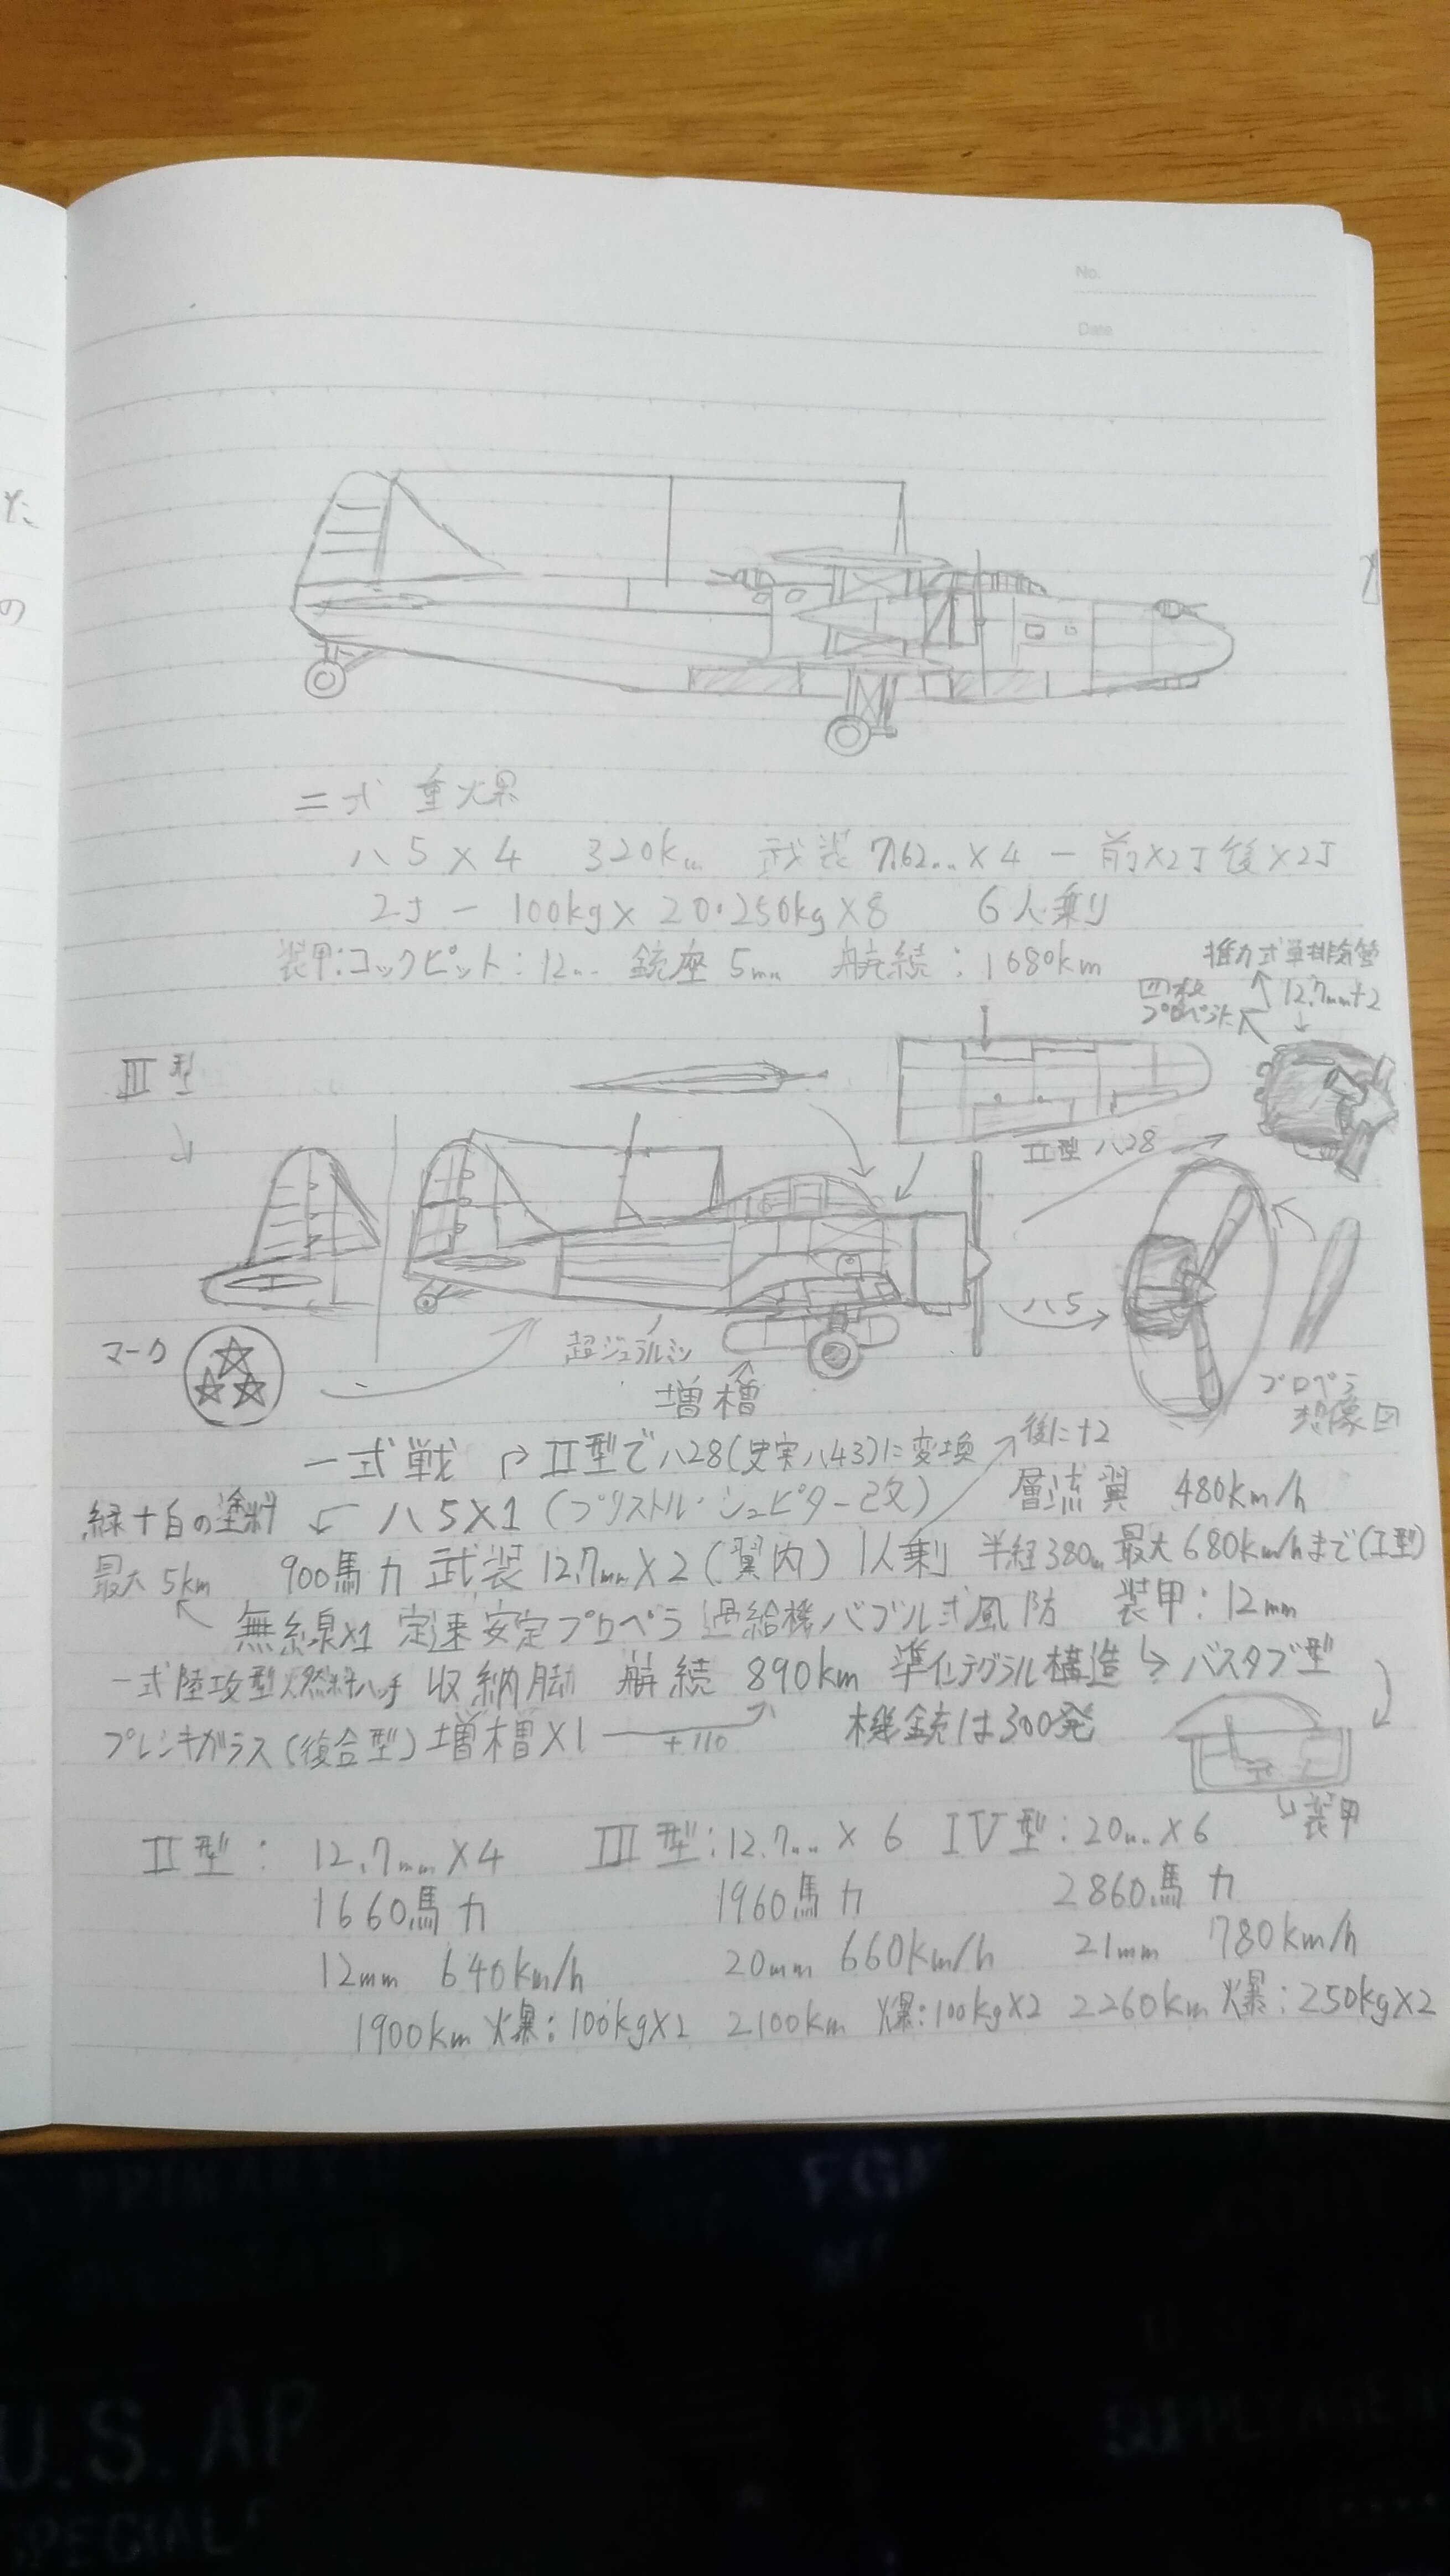 No.
Date
た
の
二式 重爆
ハ5×4 320km 武装 7.62mm×4 ー 前×2丁 後×2丁
2丁 ー 100kg×20・250kg×8 6人乗り
装甲:コックピット:12mm 銃座 5mm 航続:1680km
推力式単排気管
四枚
プロペラに
12.7mm+2
III型
II型 ハ28
ハ5
マーク
超ジュラルミン
増槽
プロペラ
想像図
後に+2
一式戦 II型でハ28(史実ハ43)に変換
緑+白の塗料 ハ5×1 (ブリストル・ジュピター改) 層流翼 480km/h
最大5km 900馬力 武装12.7mm×2(翼内) 1人乗 半径380m 最大680km/hまで(I型)
無線×1 定速安定プロペラ 過給機 バブル式風防 装甲:12mm
一式陸攻型燃料ハッチ 収納脚 航続 890km 準インテグラル構造 バスタブ型
プレシキガラス(複合型) 増槽×1 +110 機銃は300発
装甲
II型: 12.7mm×4 III型:12.7mm×6 IV型:20mm×6
1660馬力 1960馬力 2860馬力
12mm 640km/h 20mm 660km/h 21mm 780km/h
1900km 爆:100kg×2 2100km 爆:100kg×2 2260km 爆:250kg×2
PRIMARY
U.S. AR
SPECIAL
SUPPLY AGE